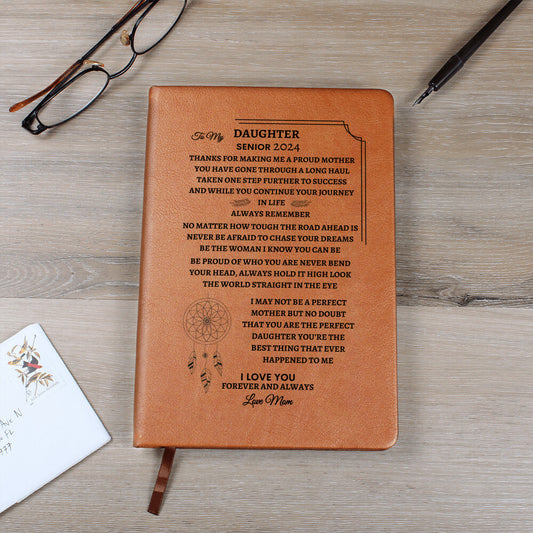 To My DAUGHTER
SENIOR 2024
THANKS FOR MAKING ME A PROUD MOTHER
YOU HAVE GONE THROUGH A LONG HAUL
TAKEN ONE STEP FURTHER TO SUCCESS
AND WHILE YOU CONTINUE YOUR JOURNEY
IN LIFE
ALWAYS REMEMBER
NO MATTER HOW TOUGH THE ROAD AHEAD IS
NEVER BE AFRAID TO CHASE YOUR DREAMS
BE THE WOMAN I KNOW YOU CAN BE
BE PROUD OF WHO YOU ARE NEVER BEND
YOUR HEAD, ALWAYS HOLD IT HIGH LOOK
THE WORLD STRAIGHT IN THE EYE
I MAY NOT BE A PERFECT
MOTHER BUT NO DOUBT
THAT YOU ARE THE PERFECT
DAUGHTER YOU'RE THE
BEST THING THAT EVER
HAPPENED TO ME
I LOVE YOU
FOREVER AND ALWAYS
Love Mom
AVE N
FL